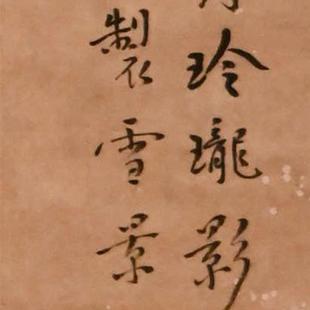 玲瓏影
製雪景